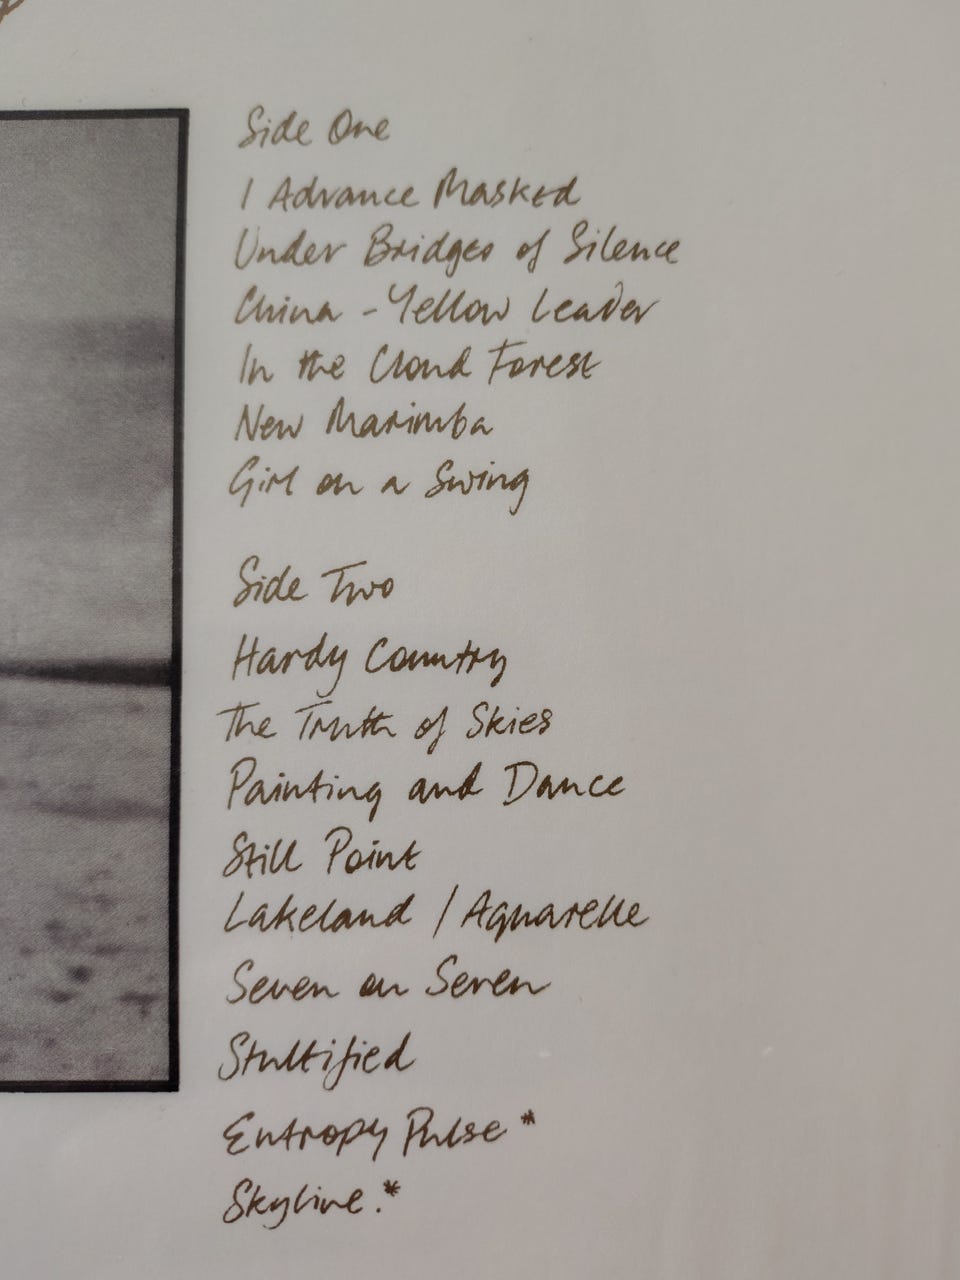 Side One
I Advance Masked
Under Bridges of Silence
China - Yellow Leader
In the Cloud Forest
New Marimba
Girl on a Swing
Side Two
Hardy Country
The Truth of Skies
Painting and Dance
Still Point
Lakeland / Aquarelle
Seven on Seven
Stultified
Entropy Pulse *
Skyline. *